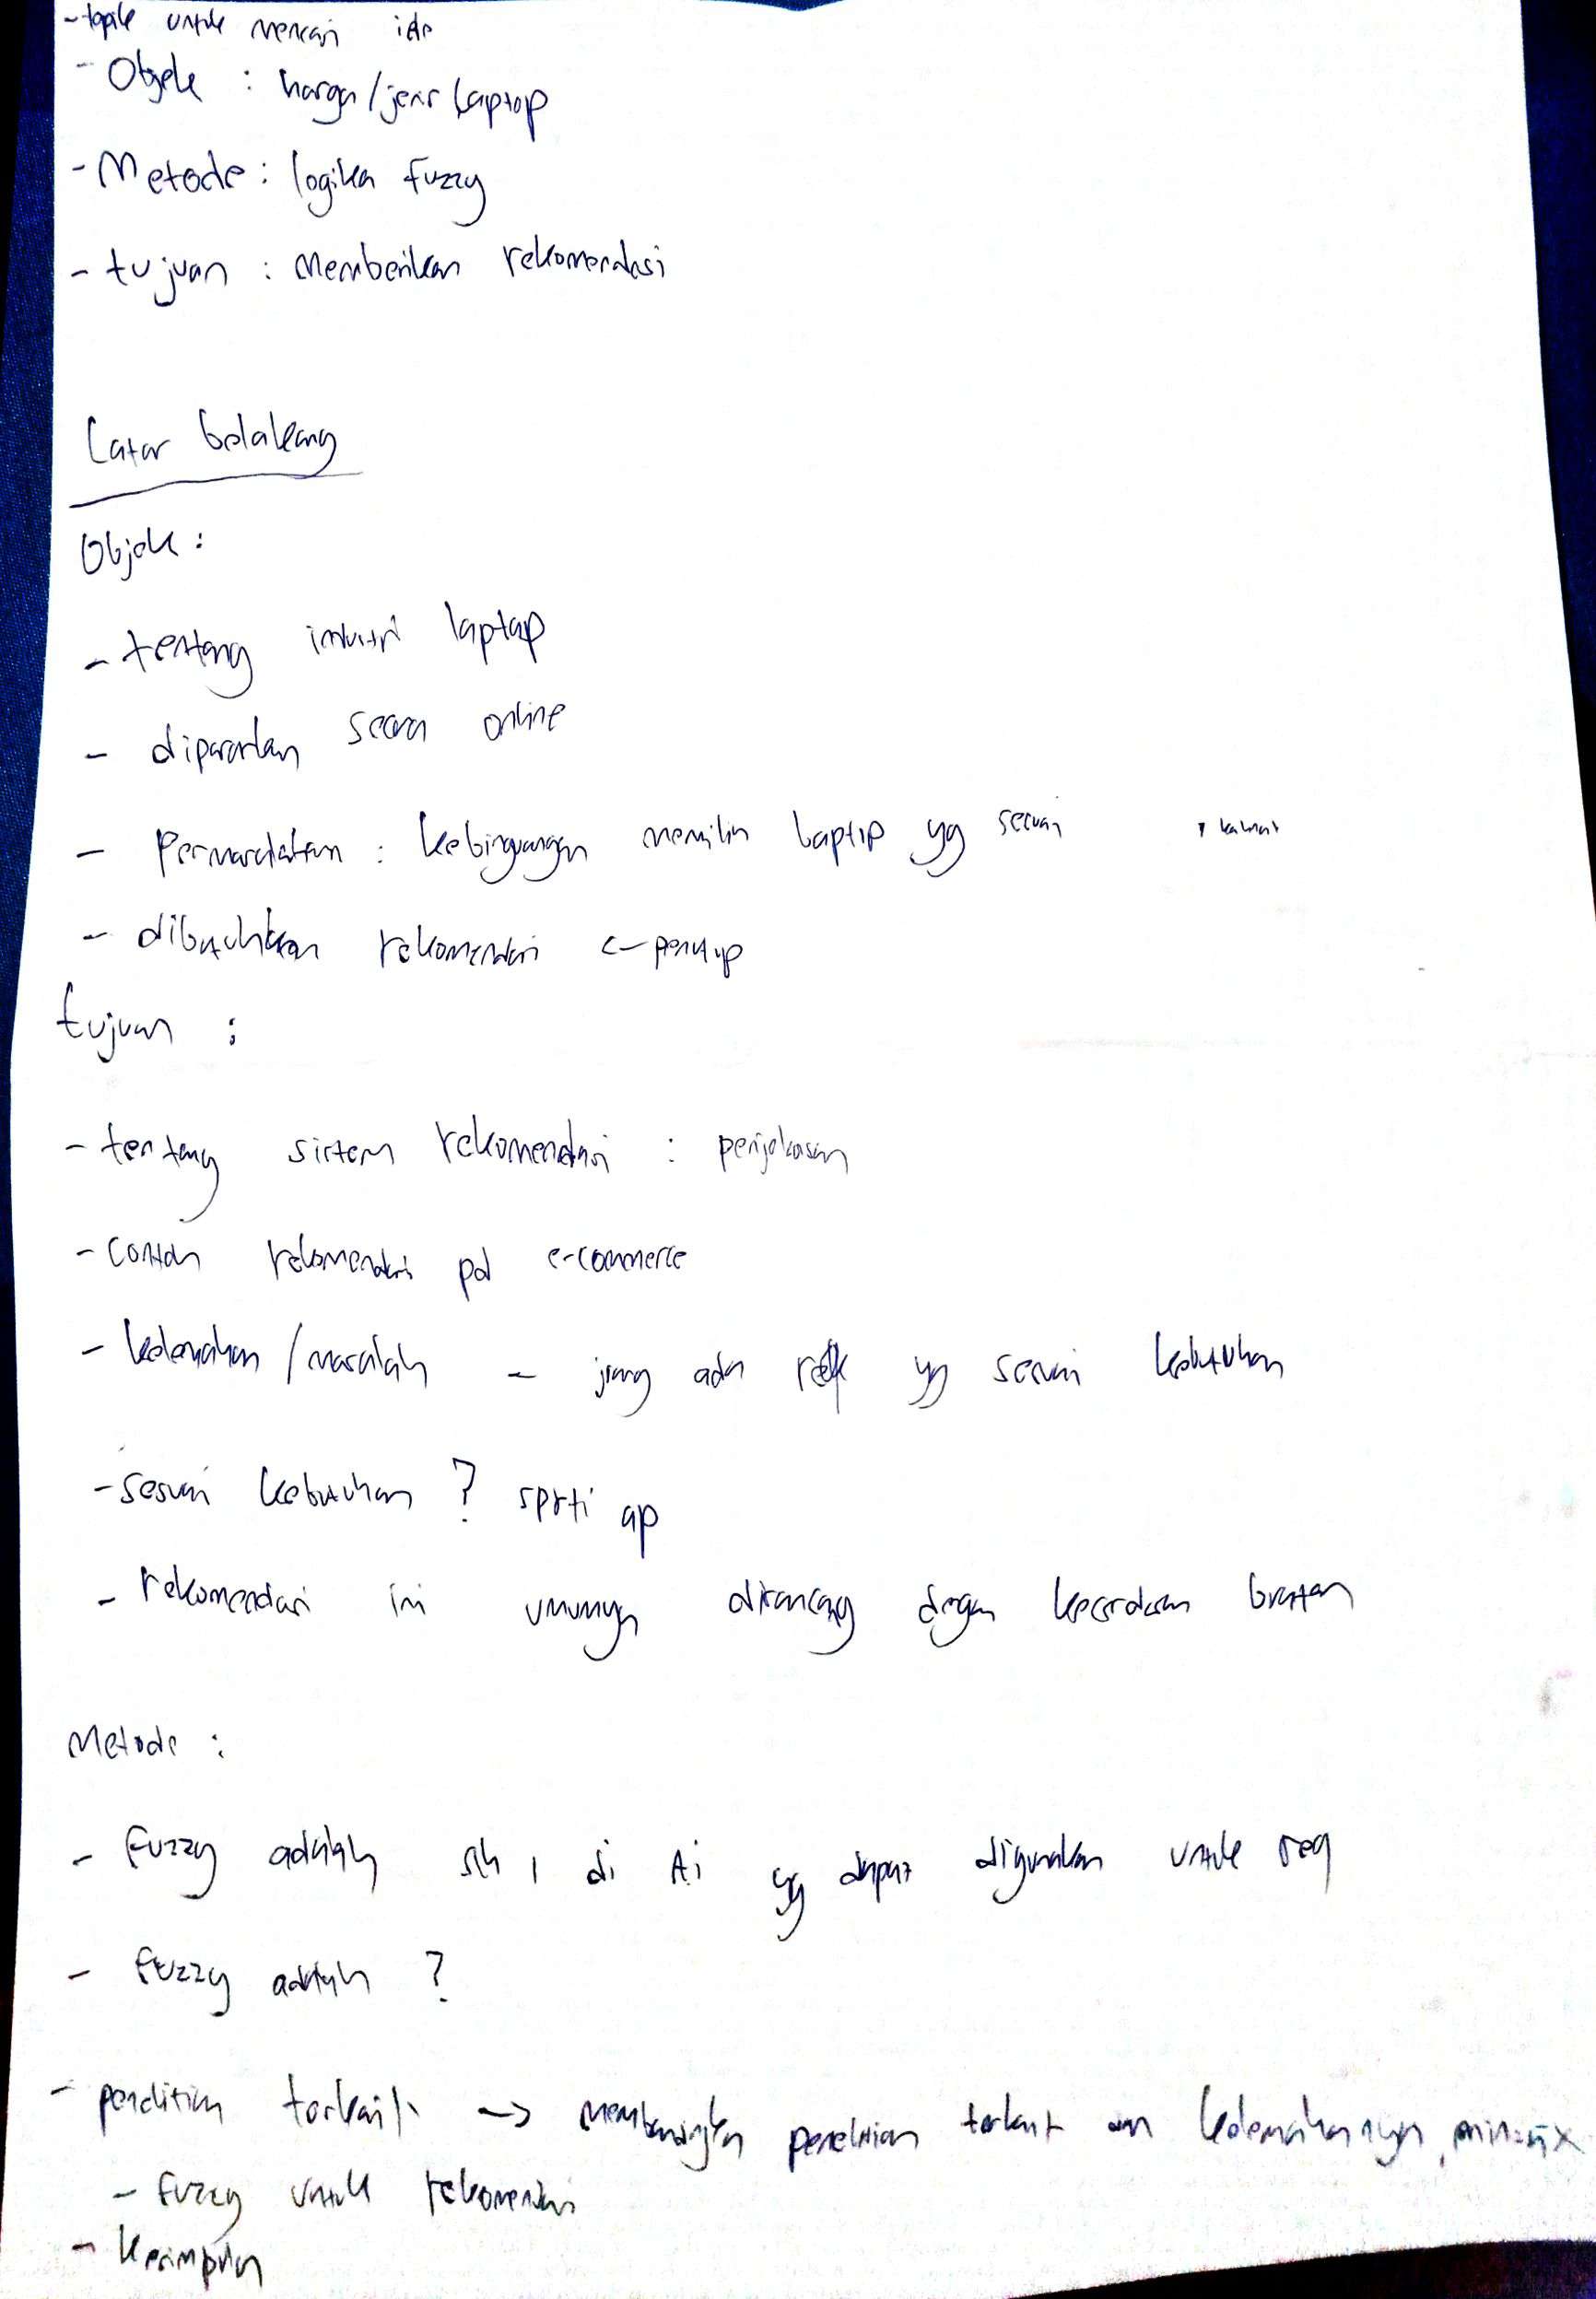 - topik untuk mencari ide
- Objek : harga/jenis laptop
- Metode : logika fuzzy
- tujuan : memberikan rekomendasi
Latar belakang
Objek :
- tentang industri laptop
- dipasarkan secara online
- Permasalahan : kebingungan memilih laptop yg sesuai
- dibutuhkan rekomendasi <- penutup
tujuan :
- tentang sistem rekomendasi : penjelasan
- contoh rekomendasi pd e-commerce
- kelemahan / masalah - jrang ada yg sesuai kebutuhan
- sesuai kebutuhan ? sprti ap
- rekomendasi ini umumnya dirancang dngan kecerdasan buatan
Metode :
- fuzzy adalah slh 1 di Ai yg dapat digunakan untuk
- fuzzy adalah ?
- penelitian terkait -> membandingkan penelitian terkait dan kelemahannya
- fuzzy untuk rekomendasi
- kesimpulan